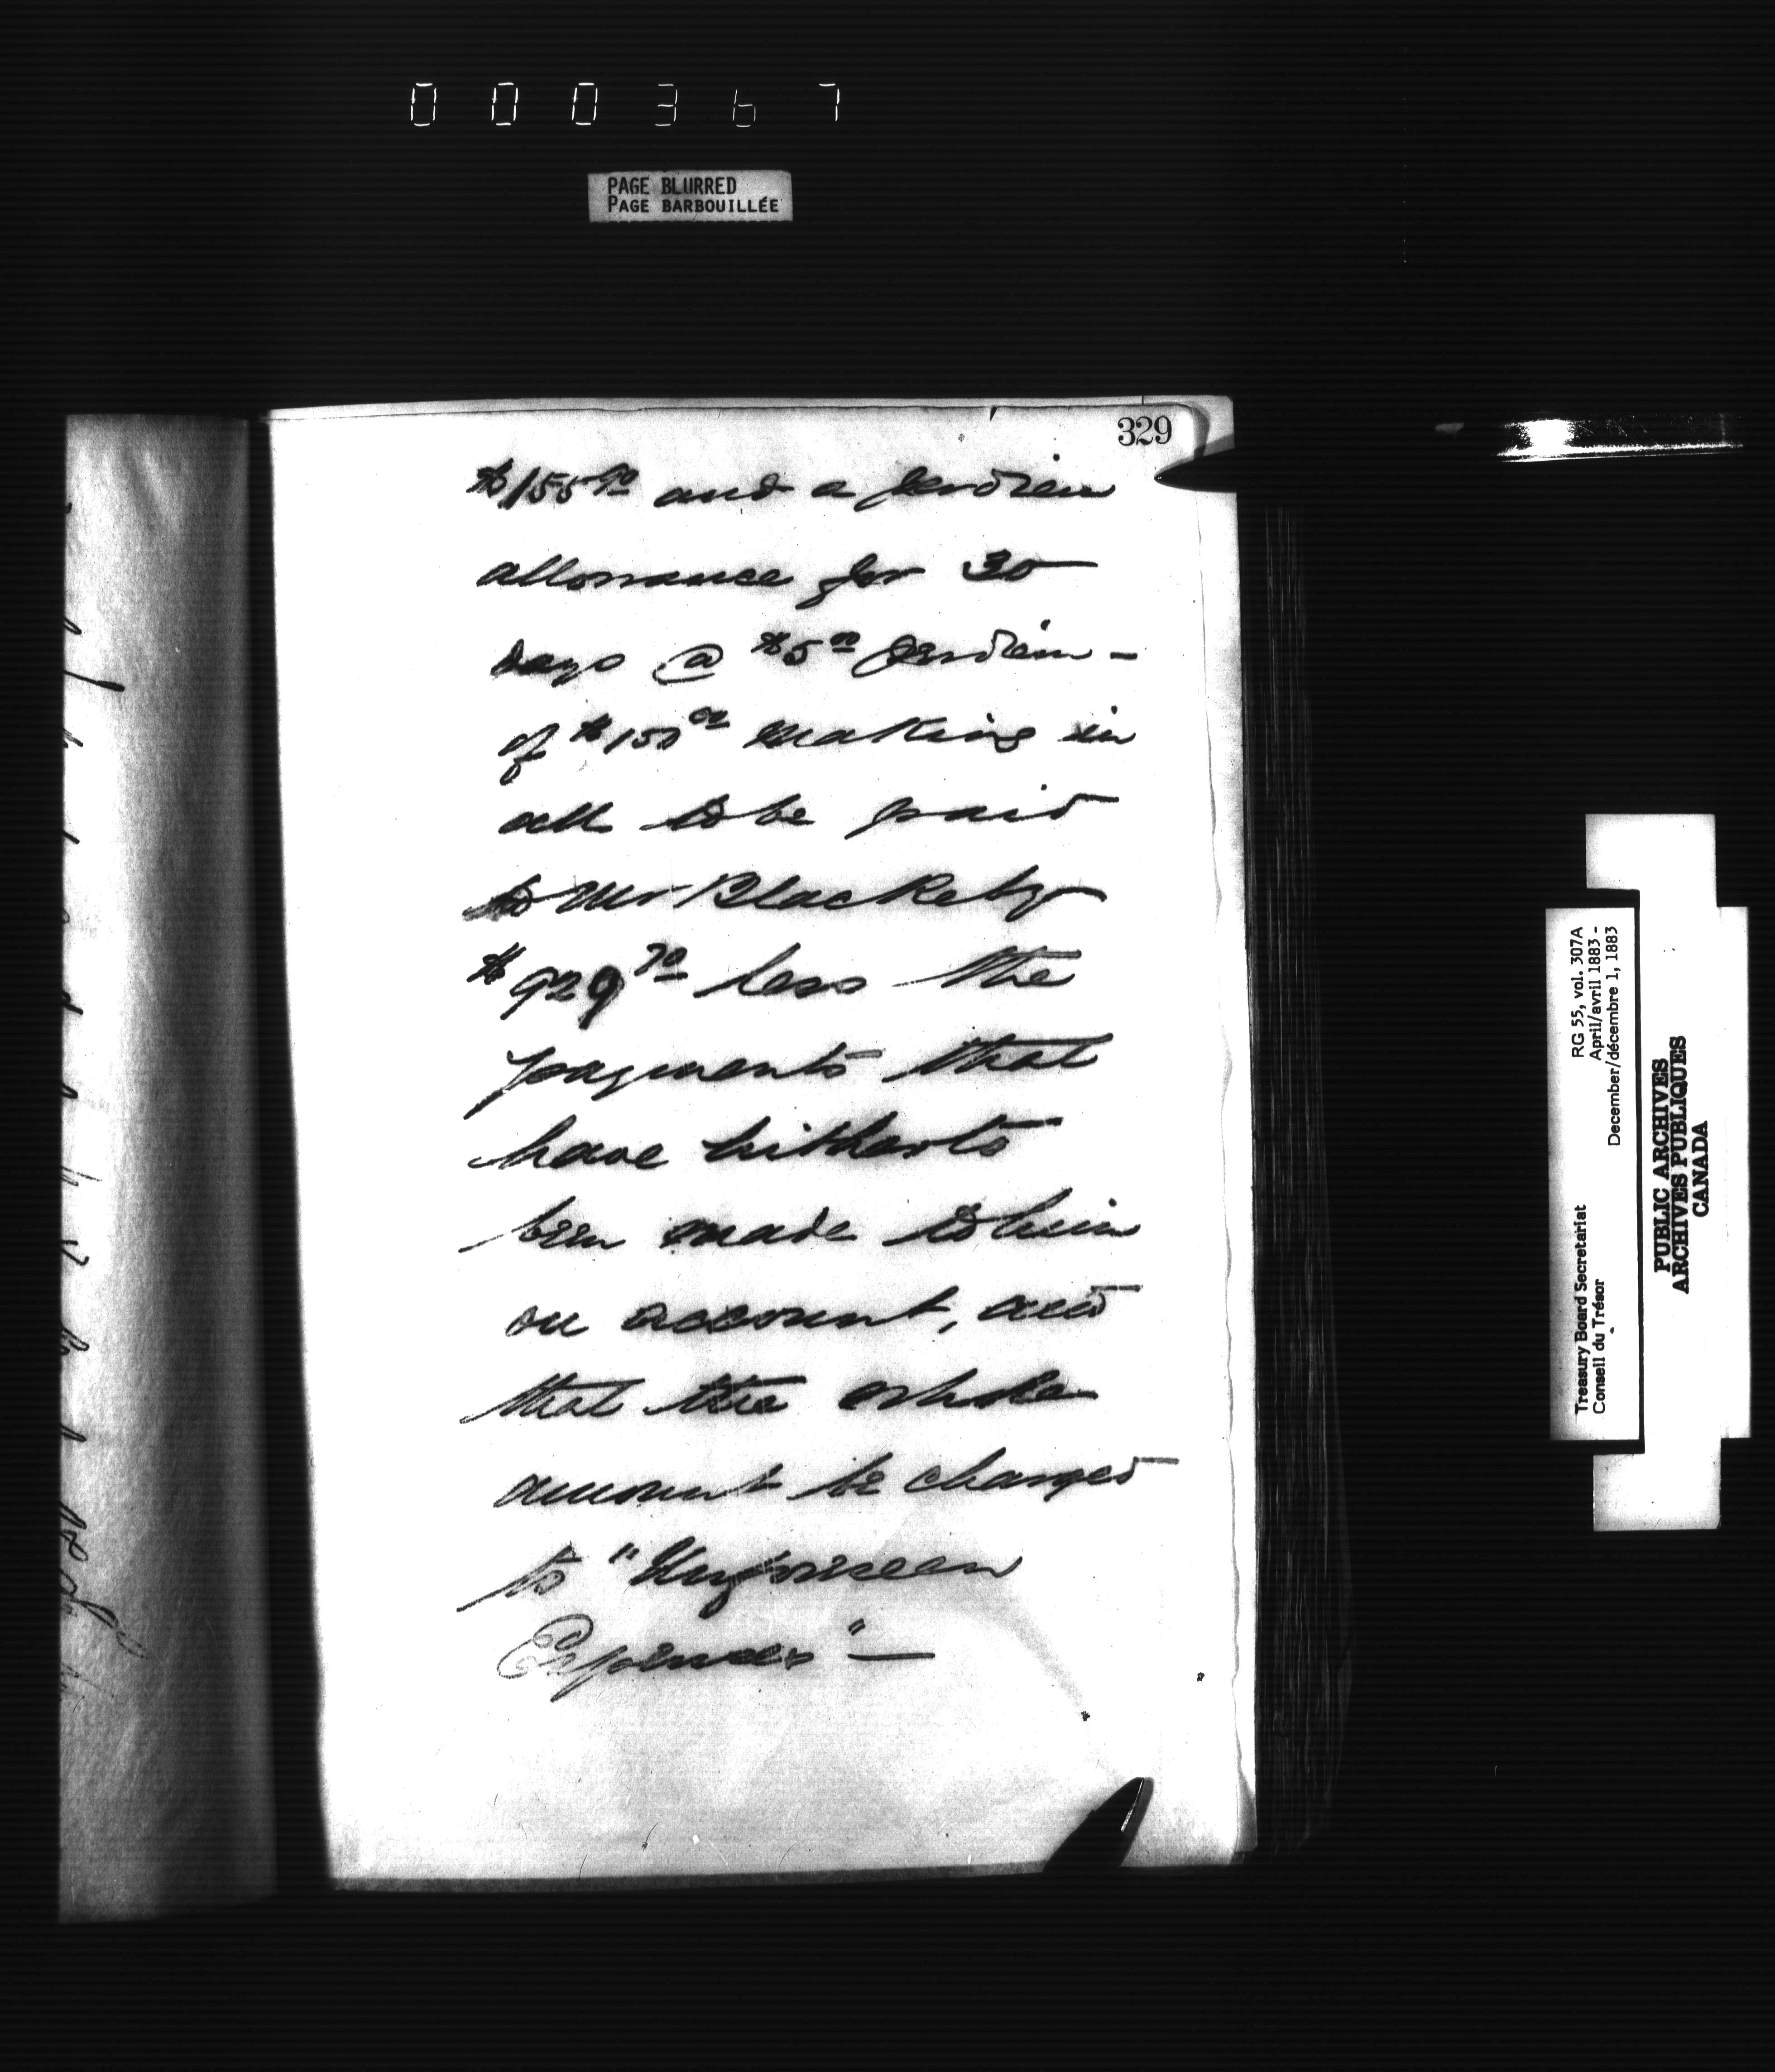 000367
PAGE BLURRED
PAGE BARBOUILLÉE
329
$155 70 and a per diem
allowance for 30
days @ $5 00 per diem -
of $150 00 making in
all to be paid
to Mr Blackeby
$929 70 less the
payments that
have hitherto
been made to him
on account, and
that the whole
amount be charged
to "Unforseen
Expenses" —
Treasury Board Secretariat RG 55, vol. 307A
Conseil du Trésor April/avril 1883 -
December/décembre 1, 1883
PUBLIC ARCHIVES
ARCHIVES PUBLIQUES
CANADA